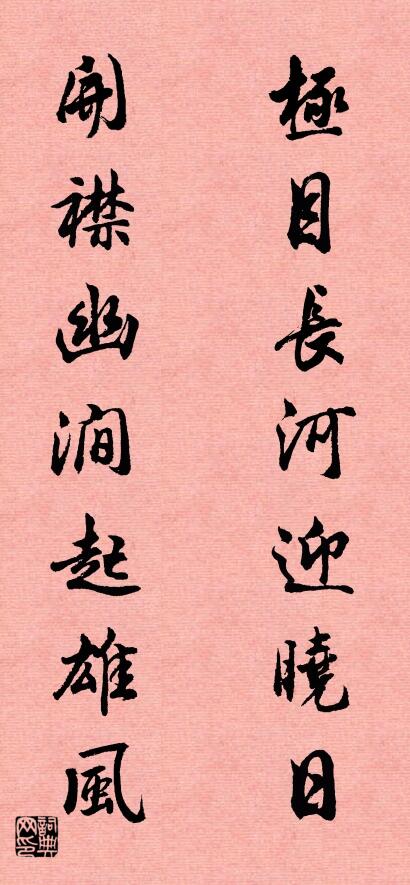 極目長河迎曉日
開襟幽澗起雄風
詞典網印